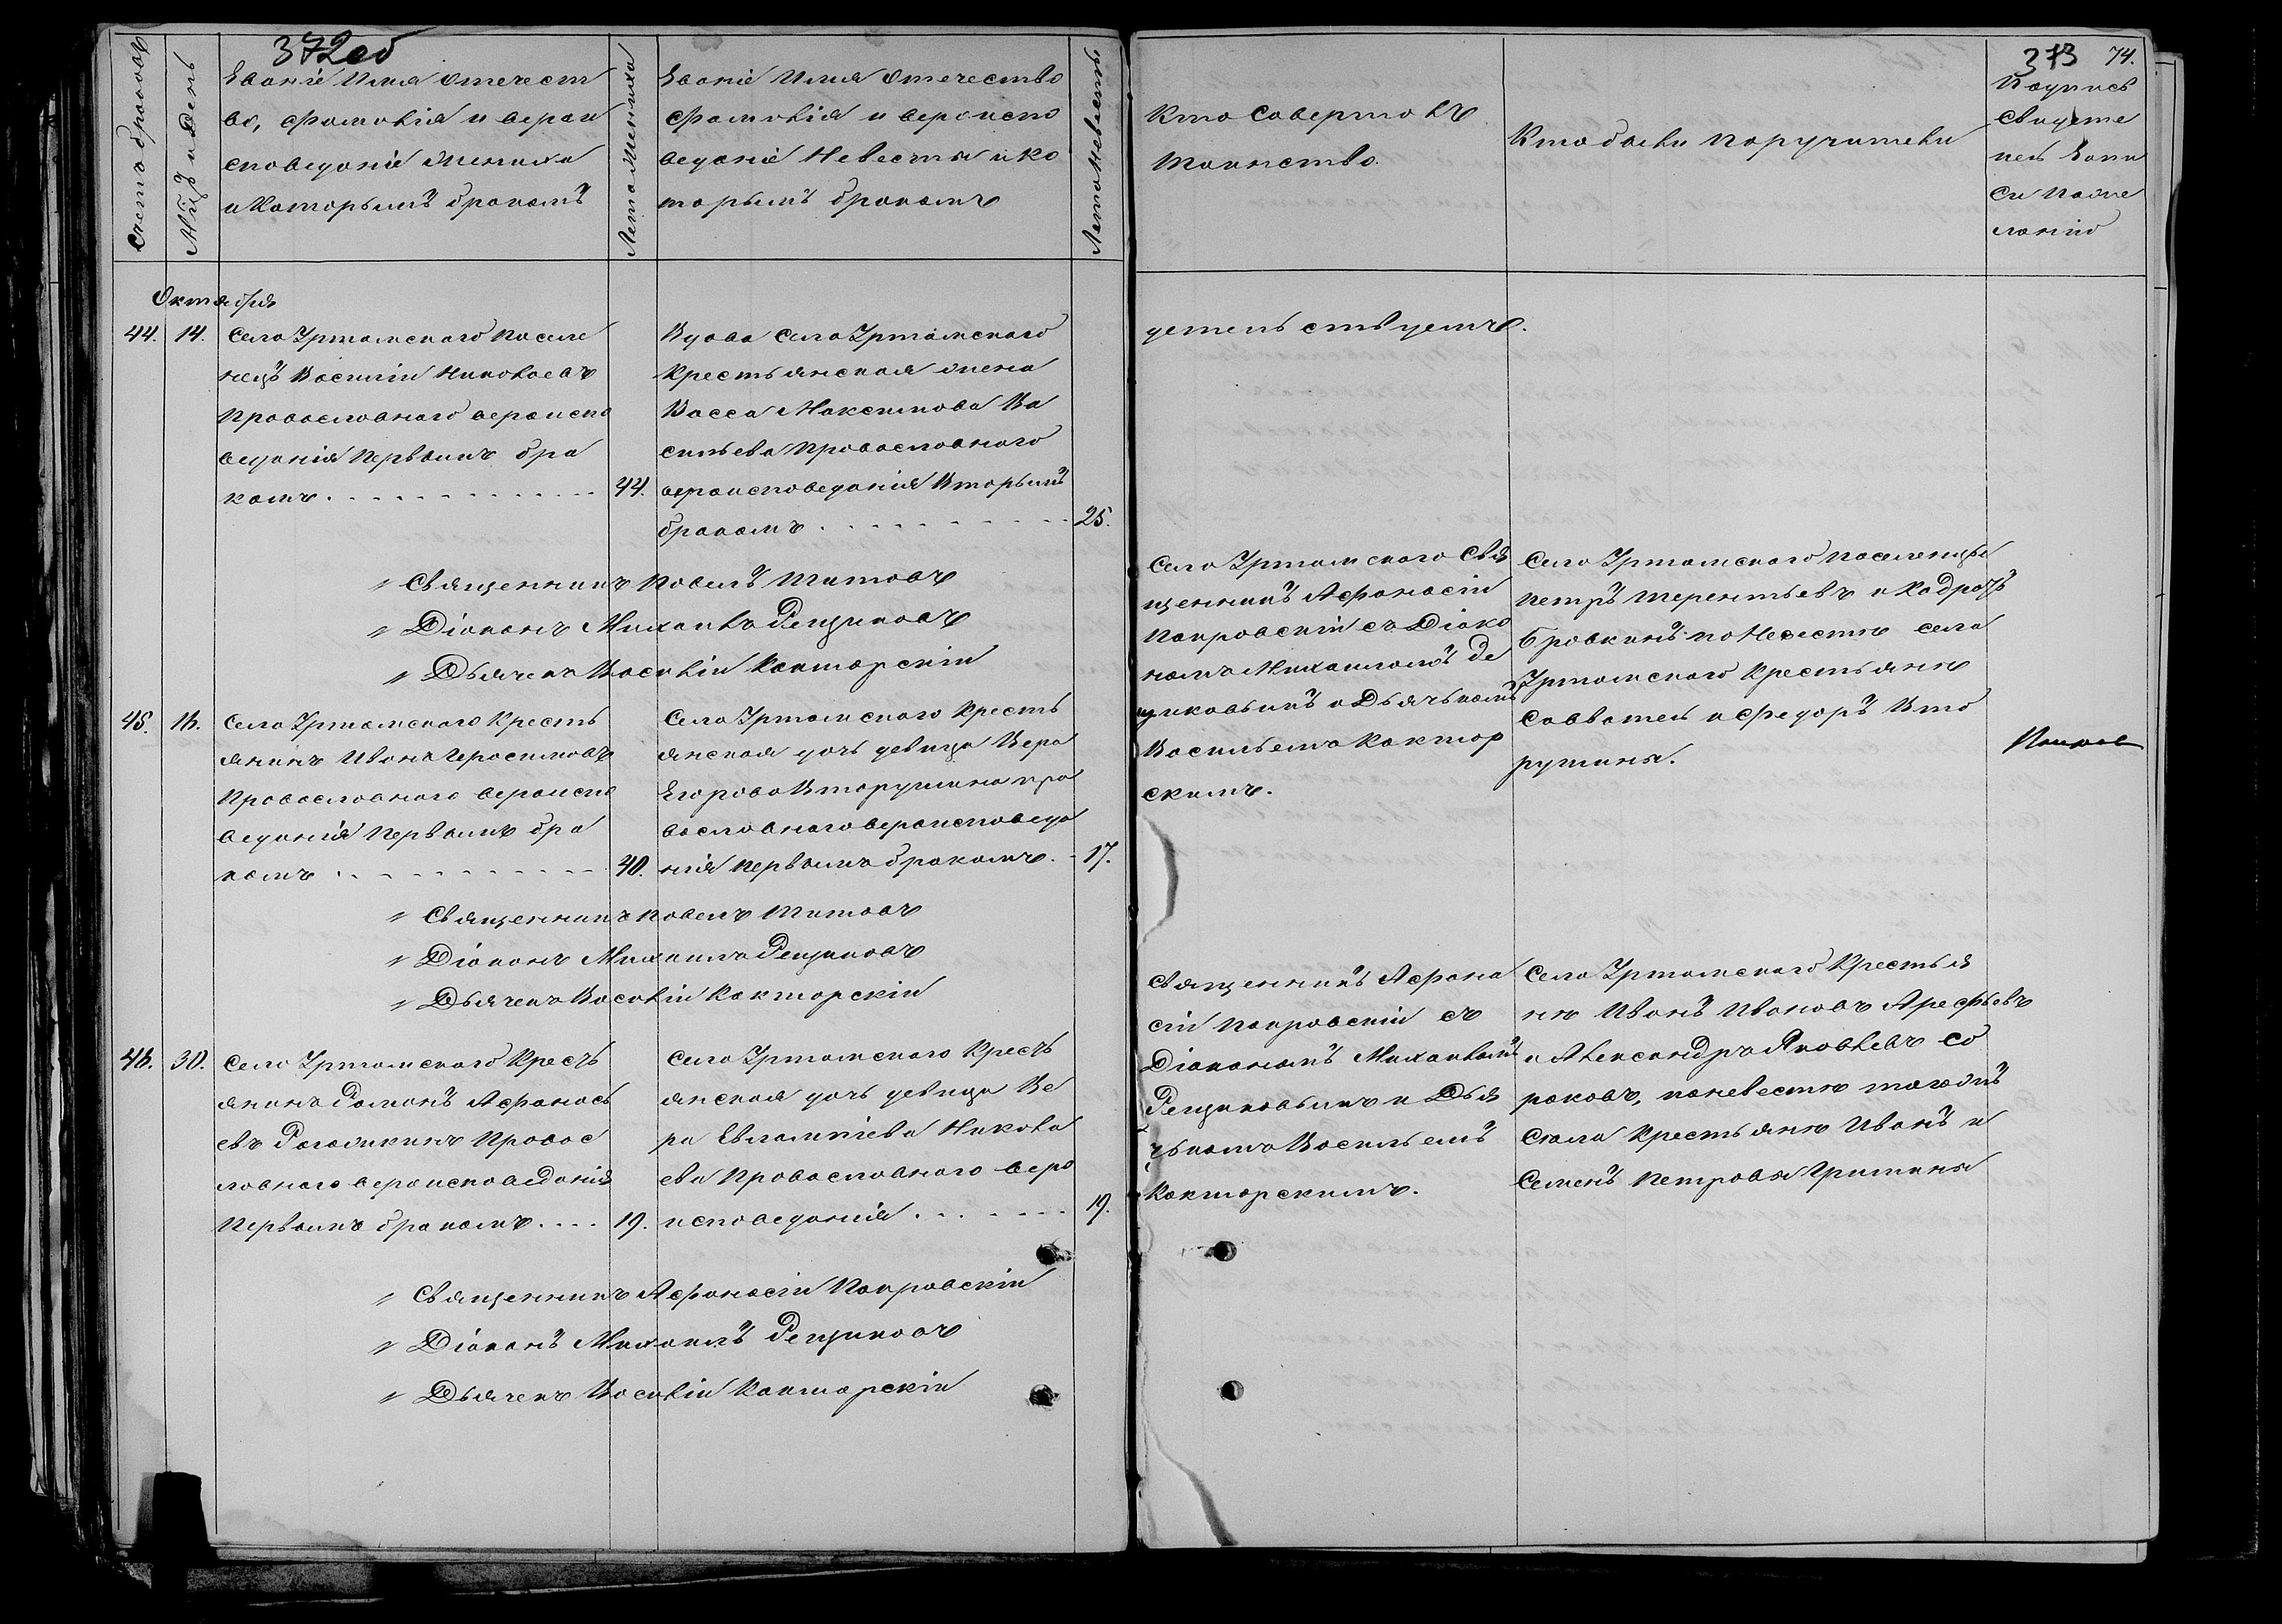 372об
Счетъ браковъ
Мцъ и День
Званіе Имя отечест
во, Фамилія и верои
споведаніе Жениха
и Которымъ бракомъ
Лета Жениха
Званіе Имя отечество
Фамилія и вероиспо
веданіе Невесты и ко
торымъ бракомъ
Лета Невесты
Октября
44. 14. Села Уртамскаго поселе
нецъ Василіи Николаевъ
Православнаго вероиспо
веданія первымъ бра
комъ. 44.
Вдова села Уртамскаго
Крестьянская жена
Васса Максимова Ва
сильева православнаго
вероисповеданія Вторымъ
бракомъ. 25.
" Священникъ Павелъ Титовъ
" Діаконъ Михаилъ Рещиковъ
" Дьячекъ Василіи Кокшарскіи
45. 16. Села Уртамскаго Кресть
янинъ Иванъ Герасимовъ
Православнаго вероиспо
веданія первымъ бра
комъ 40.
Села Уртамскаго Кресть
янская дочь девица Вера
Егорова Вторушина пра
вославнаго вероисповеда
нія первымъ бракомъ. 17.
" Священникъ Павелъ Титовъ
" Діаконъ Михаилъ Рещиковъ
" Дьячекъ Василіи Кокшарскіи
46. 30. Села Уртамскаго Кресть
янинъ Романъ Афанась
евъ Рогожкинъ Правос
лавнаго вероисповеданія
Первымъ бракомъ. 19.
Села Уртамскаго Кресть
янская дочь девица Ве
ра Евлампіева Никола
ева Православнаго веро
исповеданія. 19.
" Священникъ Афанасіи Покровскіи
" Діаконъ Михаилъ Рещиковъ
" Дьячекъ Василіи Кокшарскіи
373 74.
Кто совершалъ
таинство
Кто были поручители
Подпись
свидете
лей Запи
си по же
ланію
детельствуемъ.
Села Уртамскаго Свя
щенникъ Афанасіи
Покровскіи съ Діако
номъ Михаиломъ Ре
щиковымъ и Дьячькомъ
Васильемъ Кокшар
скимъ.
Села Уртамскаго поселенцы
Петръ Терентьевъ и Кодратъ
Бровкинъ по Невесте села
Уртамскаго Крестьяне
Савватей и Федоръ Вто
рушины.
Священникъ Афана
сіи Покровскіи съ
Діакономъ Михаиломъ
Рещиковымъ и Дья
чькомъ Васильемъ
Кокшарскимъ.
Села Уртамскаго Крестья
не Иванъ Ивановъ Арефьевъ
и Александръ Яковлевъ Со
роковъ, по невесте тогожъ
Села Крестьяне Иванъ и
Семенъ Петровы Гришины